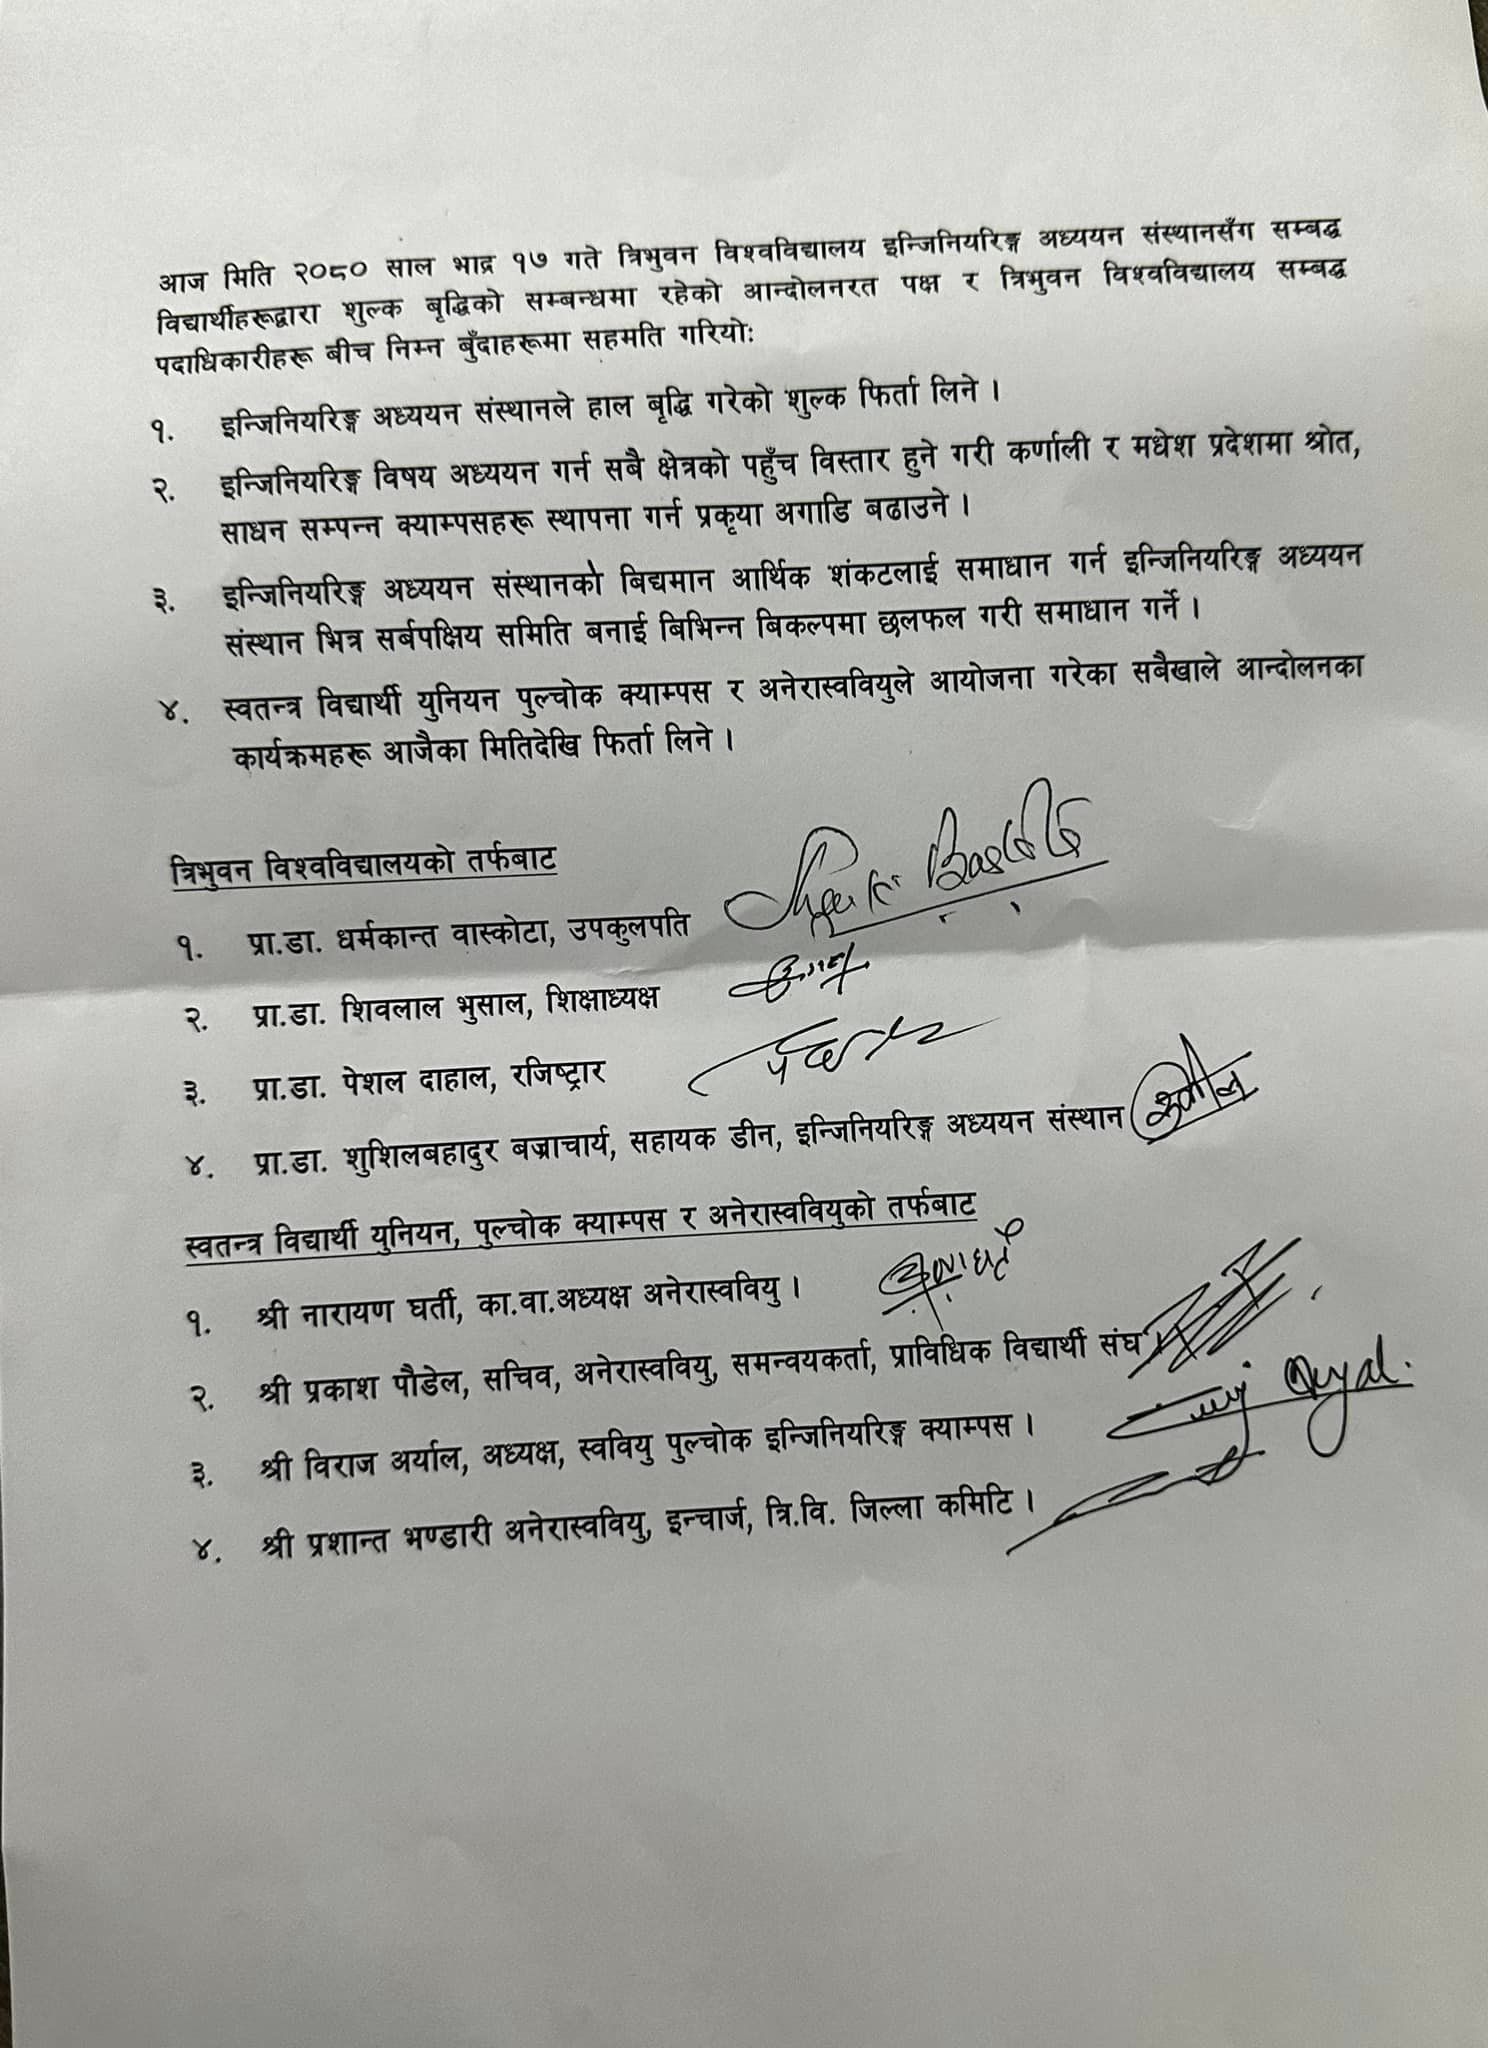 आज मिति २०८० साल भाद्र १७ गते त्रिभुवन विश्वविद्यालय इन्जिनियरिङ्ग अध्ययन संस्थानसँग सम्बद्ध
विद्यार्थीहरूद्वारा शुल्क बृद्धिको सम्बन्धमा रहेको आन्दोलनरत पक्ष र त्रिभुवन विश्वविद्यालय सम्बद्ध
पदाधिकारीहरू बीच निम्न बुँदाहरूमा सहमति गरियो:
१. इन्जिनियरिङ्ग अध्ययन संस्थानले हाल बृद्धि गरेको शुल्क फिर्ता लिने ।
२. इन्जिनियरिङ्ग विषय अध्ययन गर्न सबै क्षेत्रको पहुँच विस्तार हुने गरी कर्णाली र मधेश प्रदेशमा श्रोत,
साधन सम्पन्न क्याम्पसहरू स्थापना गर्न प्रकृया अगाडि बढाउने ।
३. इन्जिनियरिङ्ग अध्ययन संस्थानको बिद्यमान आर्थिक शंकटलाई समाधान गर्न इन्जिनियरिङ्ग अध्ययन
संस्थान भित्र सर्बपक्षिय समिति बनाई बिभिन्न बिकल्पमा छलफल गरी समाधान गर्ने ।
४. स्वतन्त्र विद्यार्थी युनियन पुल्चोक क्याम्पस र अनेरास्ववियुले आयोजना गरेका सबैखाले आन्दोलनका
कार्यक्रमहरू आजैका मितिदेखि फिर्ता लिने ।
त्रिभुवन विश्वविद्यालयको तर्फबाट
१. प्रा.डा. धर्मकान्त वास्कोटा, उपकुलपति
२. प्रा.डा. शिवलाल भुसाल, शिक्षाध्यक्ष
३. प्रा.डा. पेशल दाहाल, रजिष्ट्रार
४. प्रा.डा. शुशिलबहादुर बज्राचार्य, सहायक डीन, इन्जिनियरिङ्ग अध्ययन संस्थान
स्वतन्त्र विद्यार्थी युनियन, पुल्चोक क्याम्पस र अनेरास्ववियुको तर्फबाट
१. श्री नारायण घर्ती, का.वा.अध्यक्ष अनेरास्ववियु ।
२. श्री प्रकाश पौडेल, सचिव, अनेरास्ववियु, समन्वयकर्ता, प्राविधिक विद्यार्थी संघ
३. श्री विराज अर्याल, अध्यक्ष, स्ववियु पुल्चोक इन्जिनियरिङ्ग क्याम्पस ।
४. श्री प्रशान्त भण्डारी अनेरास्ववियु, इन्चार्ज, त्रि.वि. जिल्ला कमिटि ।